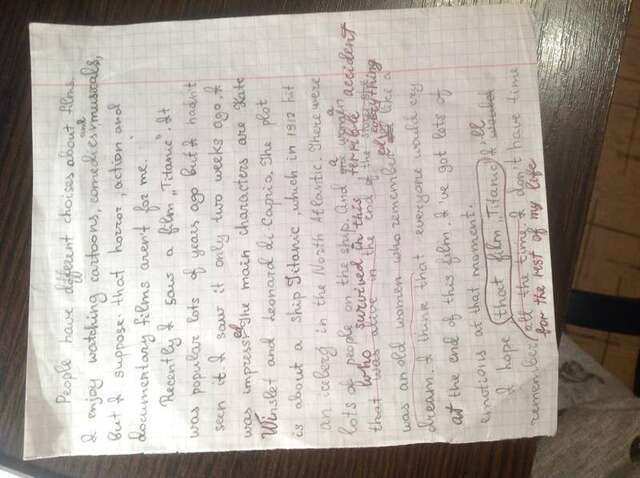 People have different choises about films.
I enjoy watching cartoons, comedies and musicals,
but I suppose that horror, action and
documentary films aren't for me.
Recently I saw a film "Titanic". It
was popular lots of years ago but I hadn't
seen it. I saw it only two weeks ago. I
was impressed. The main characters are Kate
Winslet and Leonard di Caprio. The plot
is about a ship Titanic, which in 1912 hit
an iceberg in the North Atlantic. There were
lots of people on the ship. And a woman
who survived in this terrible accident
that was alive in the end of the
was an old women who remember everything like a
dream. I think that everyone would cry
at the end of this film. I've got lots of
emotions at that moment.
I hope that film "Titanic" I'll
remember all the time. I don't have time
for the rest of my life